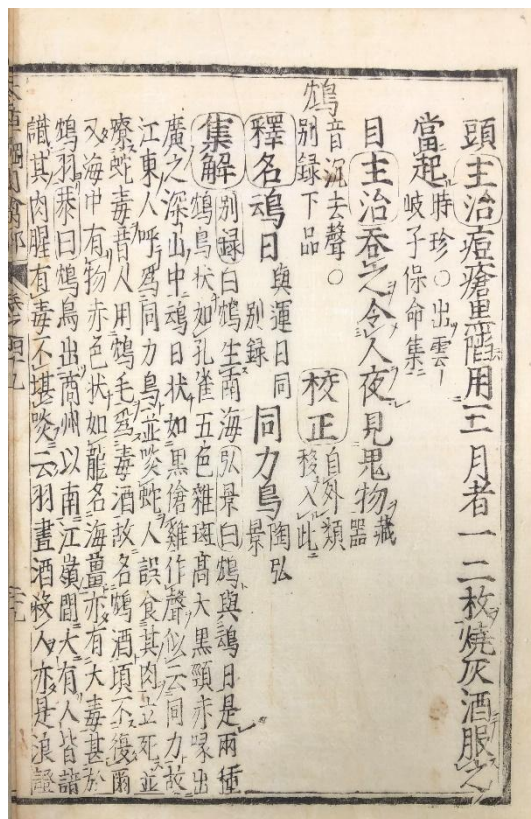 頭主治痘瘡黑陷用三月者一二枚燒灰酒服之
當起時珍○出雲
岐子保命集
目主治吞之令人夜見鬼物藏
器
鴆音沉去聲○
別録下品
校正自外類
移入此
釋名䲰日與運日同
別録
同力鳥陶弘
景
集解別録曰鴆生南海弘景曰鴆與䲰日是兩種
鴆鳥狀如孔雀五色雜斑高大黑頸赤喙出
廣之深山中䲰日狀如黑傖雞作聲似云同力故
江東人呼爲同力鳥並啖蛇人誤食其肉立死並
療蛇毒昔人用鴆毛爲毒酒故名鴆酒頃不復爾
又海中有物赤色狀如龍名海薑亦有大毒甚於
鴆羽恭曰鴆鳥出商州以南江嶺間大有人皆諳
識其肉腥有毒不堪啖云羽畫酒殺人亦是浪證